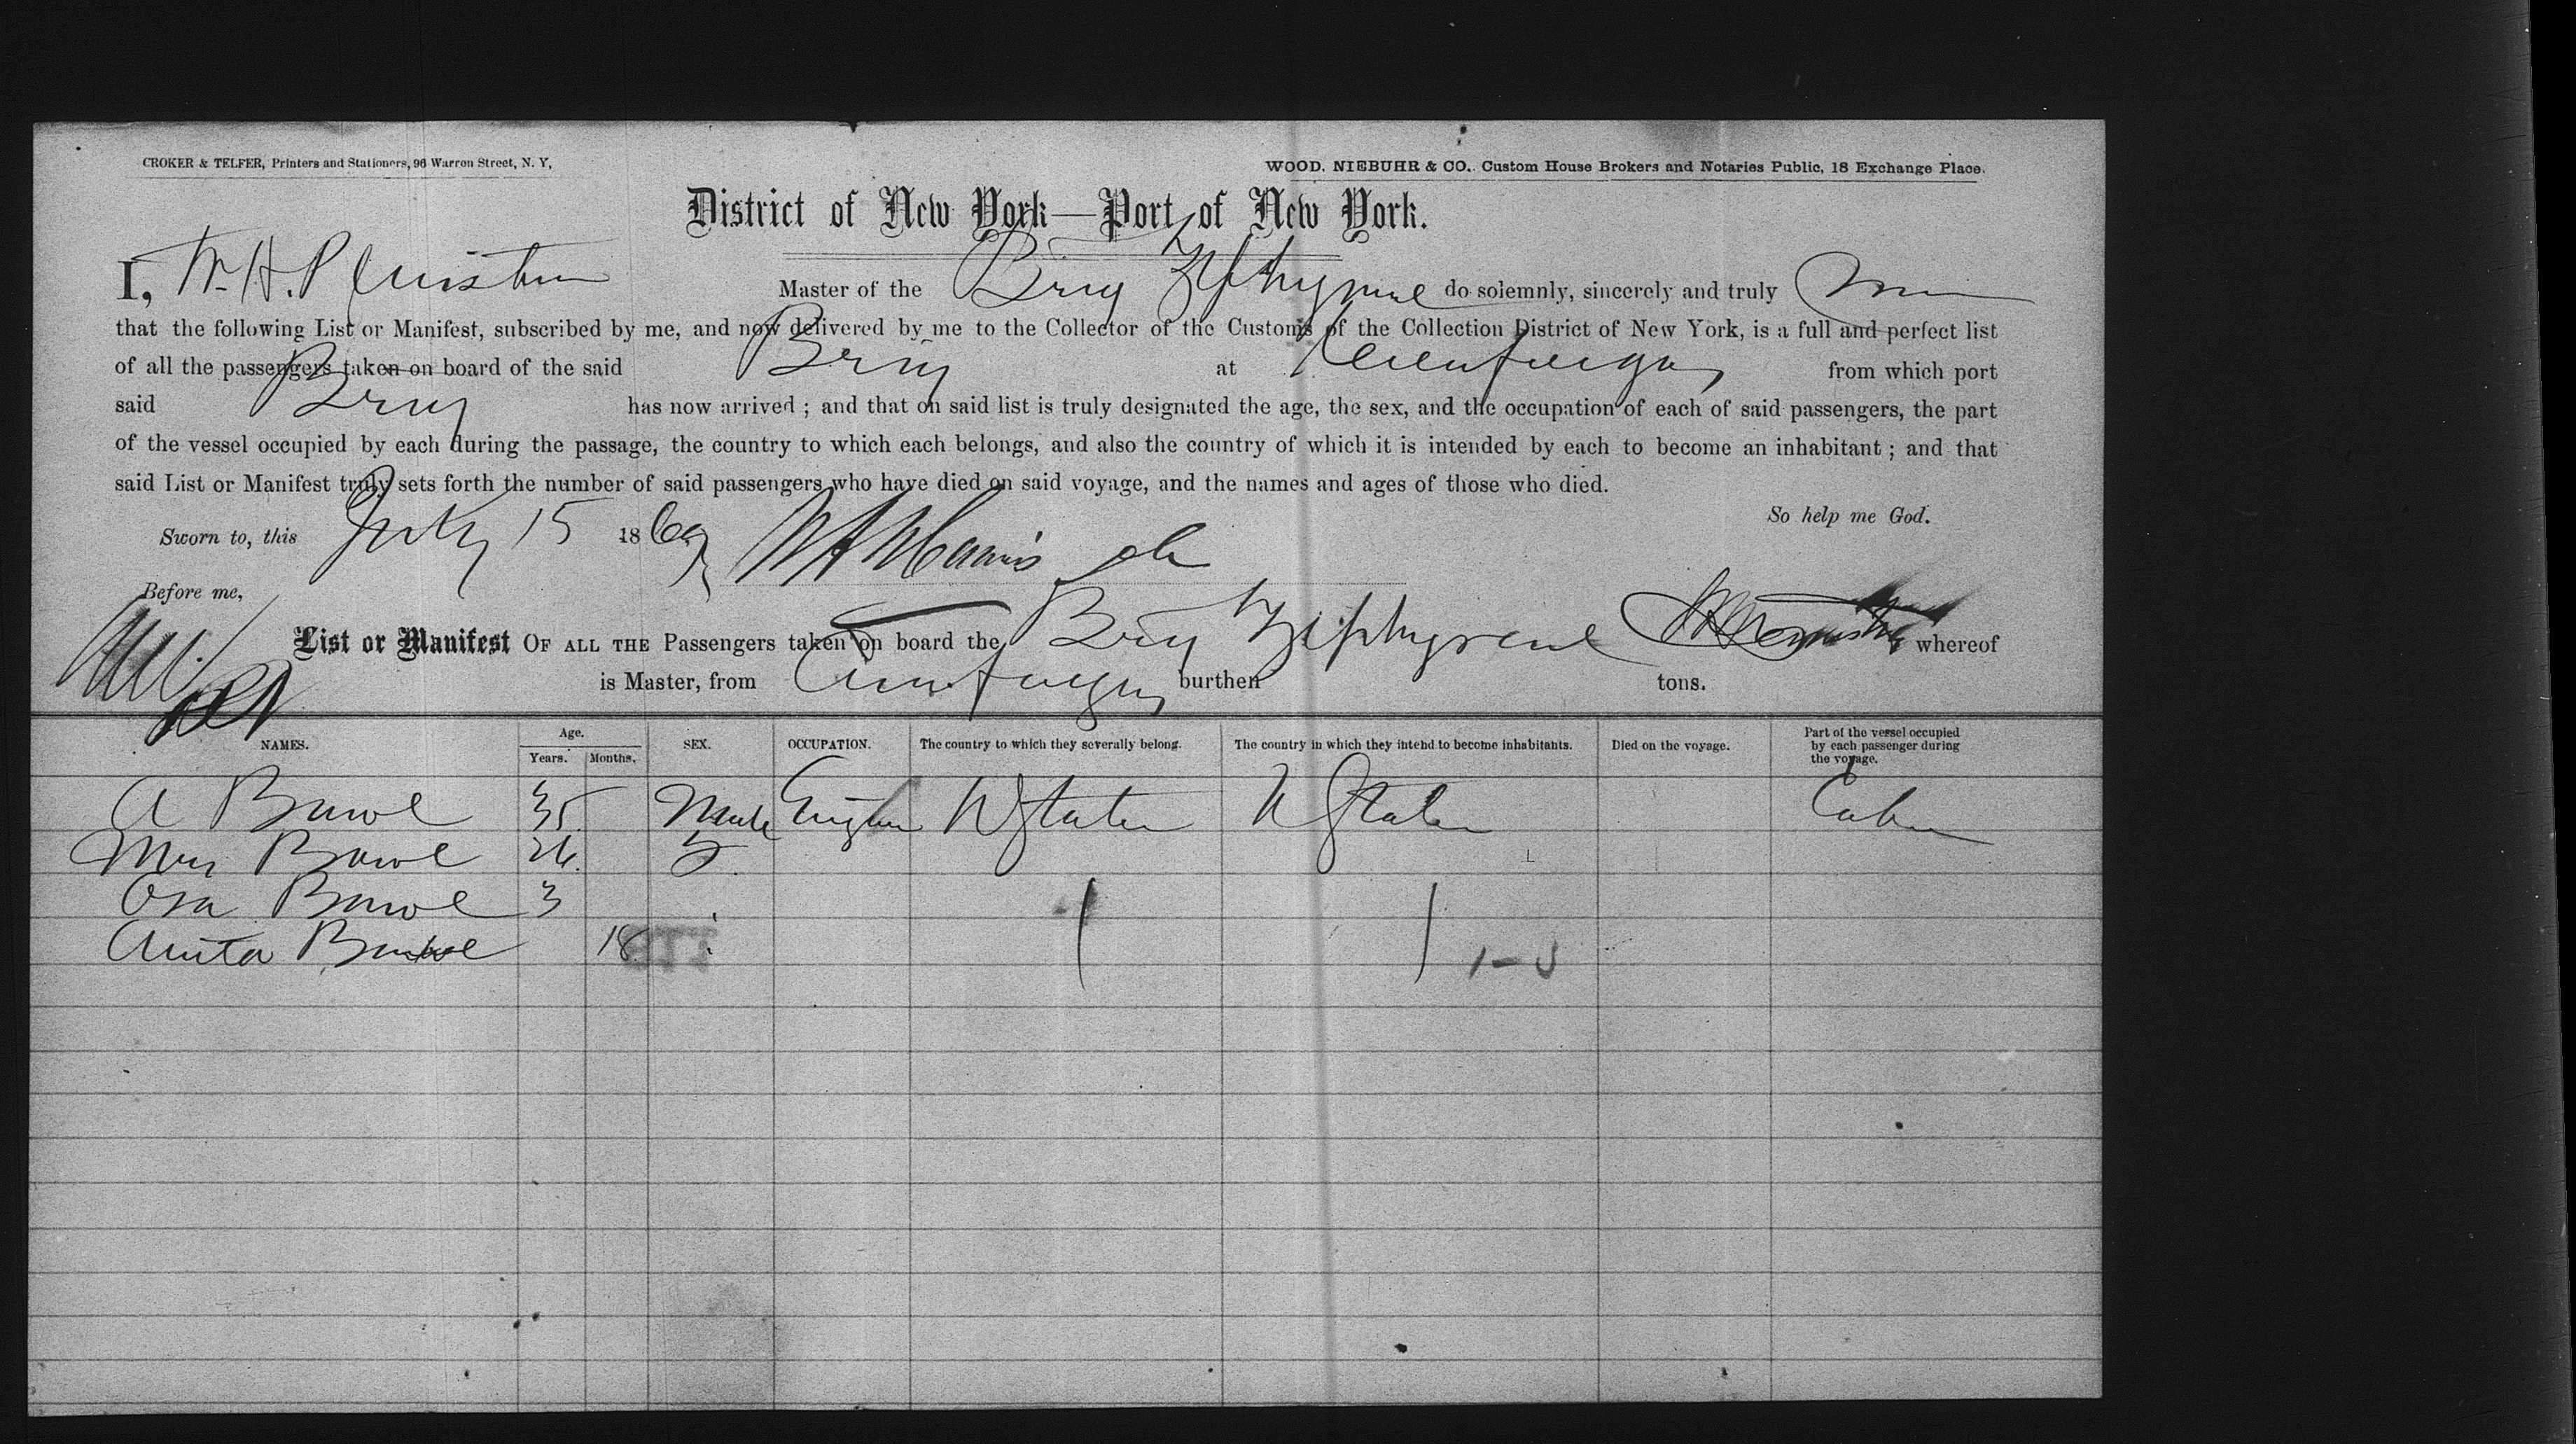 CROKER & TELFER, Printers and Stationers, 96 Warren Street, N. Y,
WOOD, NIEBUHR & CO., Custom House Brokers and Notaries Public, 18 Exchange Place.
District of New York—Port of New York.
I, W. H. Master of the Brig Zephyrine do solemnly, sincerely and truly
that the following List or Manifest, subscribed by me, and now delivered by me to the Collector of the Customs of the Collection District of New York, is a full and perfect list
of all the passengers taken on board of the said Brig at Cienfuegos from which port
said Brig has now arrived ; and that on said list is truly designated the age, the sex, and the occupation of each of said passengers, the part
of the vessel occupied by each during the passage, the country to which each belongs, and also the country of which it is intended by each to become an inhabitant ; and that
said List or Manifest truly sets forth the number of said passengers who have died on said voyage, and the names and ages of those who died.
So help me God.
Sworn to, this July 15 1869
Before me,
List or Manifest OF ALL THE Passengers taken on board the Brig Zephyrine whereof
is Master, from Cienfuegos burthen tons.
NAMES. Age. Years. Months. SEX. OCCUPATION. The country to which they severally belong. The country in which they intend to become inhabitants. Died on the voyage. Part of the vessel occupied by each passenger during the voyage.
A 35 Male U States U States Cabin
Mrs 26
3
Anita 18